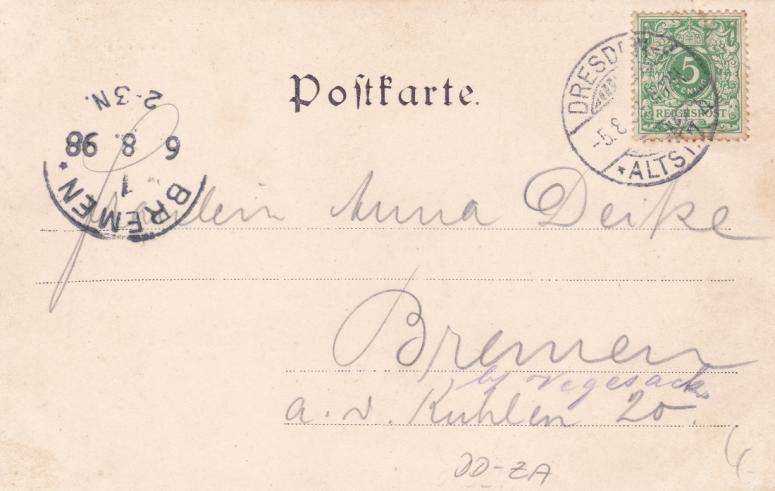 Postkarte.
DRESDEN
-5.8.
* ALTST.
5
PFENNIG
REICHSPOST
BREMEN *
1
6 8. 98
2-3N.
Fräulein Anna Deike
Bremen
by Vegesack
a. d. Kuhlen 20.
DD-ZA